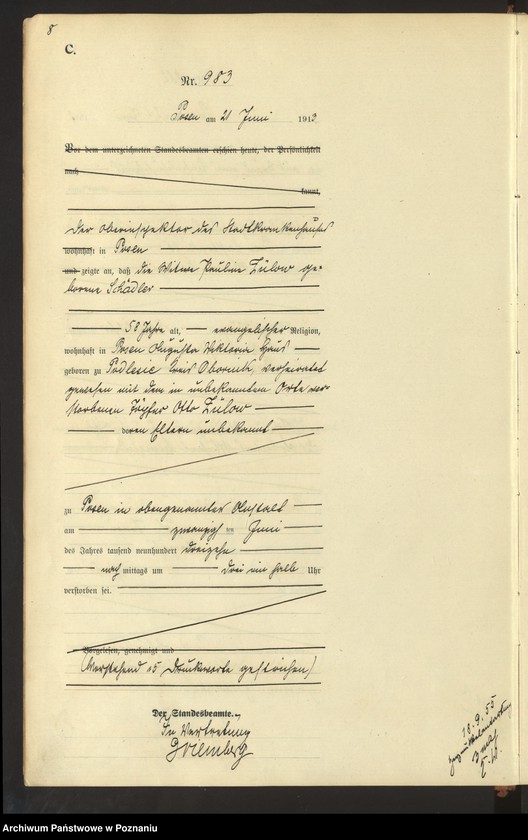 8
C.
Nr. 983
Posen am 21 Juni 1913
Vor dem unterzeichneten Standesbeamten erschien heute, der Persönlichkeit
nach
kannt,
Der Oberinspektor des Stadtkrankenhauses
wohnhaft in Posen
und zeigte an, daß die Witwe Pauline Zülow ge-
borene Schädler
58 Jahre alt, evangelischer Religion,
wohnhaft in Posen Augusta Viktoria Haus
geboren zu Podlesie Kreis Obornik, verheiratet
gewesen mit dem in unbekanntem Orte ver-
storbenen Töpfer Otto Zülow
deren Eltern unbekannt
zu Posen in obengenannter Anstalt
am zwanzigsten Juni
des Jahres tausend neunhundert dreizehn
nach mittags um drei ein halb Uhr
verstorben sei.
Vorgelesen, genehmigt und
(Vorstehend 15 Druckworte gestrichen)
Der Standesbeamte.
In Vertretung
18.9.55
Archiwum Państwowe w Poznaniu